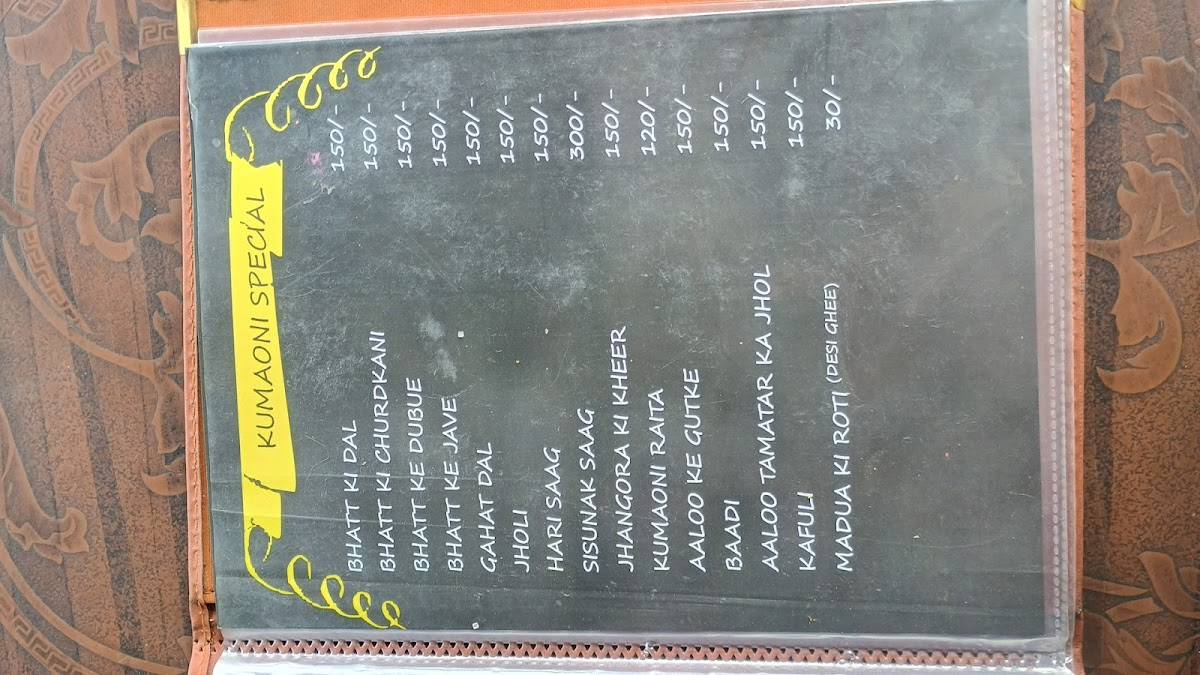 KUMAONI SPECIAL
BHATT KI DAL 150/-
BHATT KI CHURDKANI 150/-
BHATT KE DUBUE 150/-
BHATT KE JAVE 150/-
GAHAT DAL 150/-
JHOLI 150/-
HARI SAAG 150/-
SISUNAK SAAG 300/-
JHANGORA KI KHEER 150/-
KUMAONI RAITA 120/-
AALOO KE GUTKE 150/-
BAADI 150/-
AALOO TAMATAR KA JHOL 150/-
KAFULI 150/-
MADUA KI ROTI (DESI GHEE) 30/-